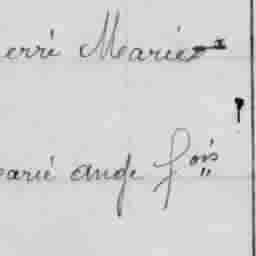 erré Marie
arié ange fois